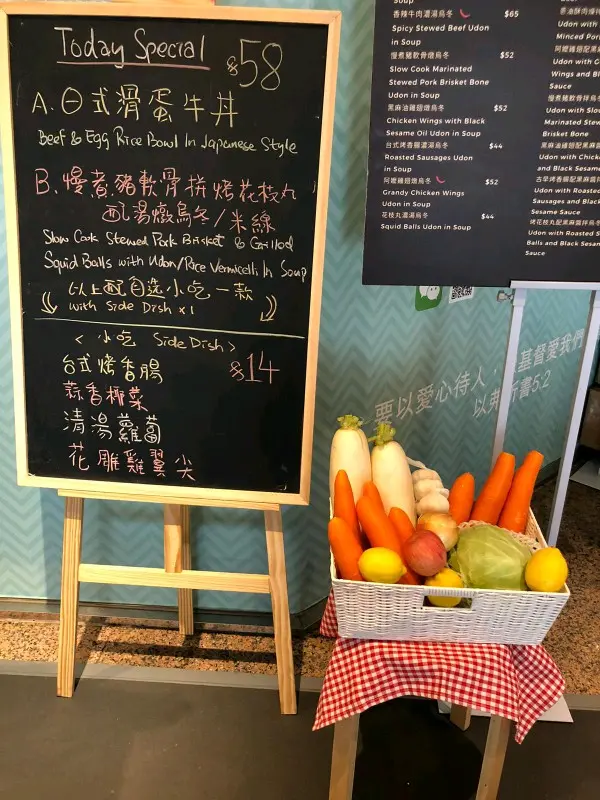 Today Special
$58
A. 日式滑蛋牛丼
Beef & Egg Rice Bowl In Japanese Style
B. 慢煮豬軟骨拼烤花枝丸
配湯燉烏冬/米線
Slow Cook Stewed Pork Brisket & Grilled
Squid Balls with Udon/Rice Vermicelli In Soup
以上配自选小吃一款
with Side Dish x1
< 小吃 Side Dish >
台式烤香腸
$14
蒜香椰菜
清湯蘿蔔
花雕雞翼尖
香辣牛肉濃湯烏冬 $65
Spicy Stewed Beef Udon
in Soup
慢煮豬軟骨燉烏冬 $52
Slow Cook Marinated
Stewed Pork Brisket Bone
Udon in Soup
黑麻油雞翅燉烏冬 $52
Chicken Wings with Black
Sesame Oil Udon in Soup
台式烤香腸濃湯烏冬 $44
Roasted Sausages Udon
in Soup
阿嬤雞翅燉烏冬 $52
Grandy Chicken Wings
Udon in Soup
花枝丸濃湯烏冬 $44
Squid Balls Udon in Soup
Udon with
Minced Por
Udon with G
Wings and Bl
Sauce
Udon with Slow
Marinated Stew
Brisket Bone
Udon with Chick
and Black Sesame
Udon with Roasted
Sausages and Black
Sesame Sauce
Udon with Roasted S
Balls and Black Sesam
Sauce
要以愛心待人，
基督愛我們
以弗所書5:2